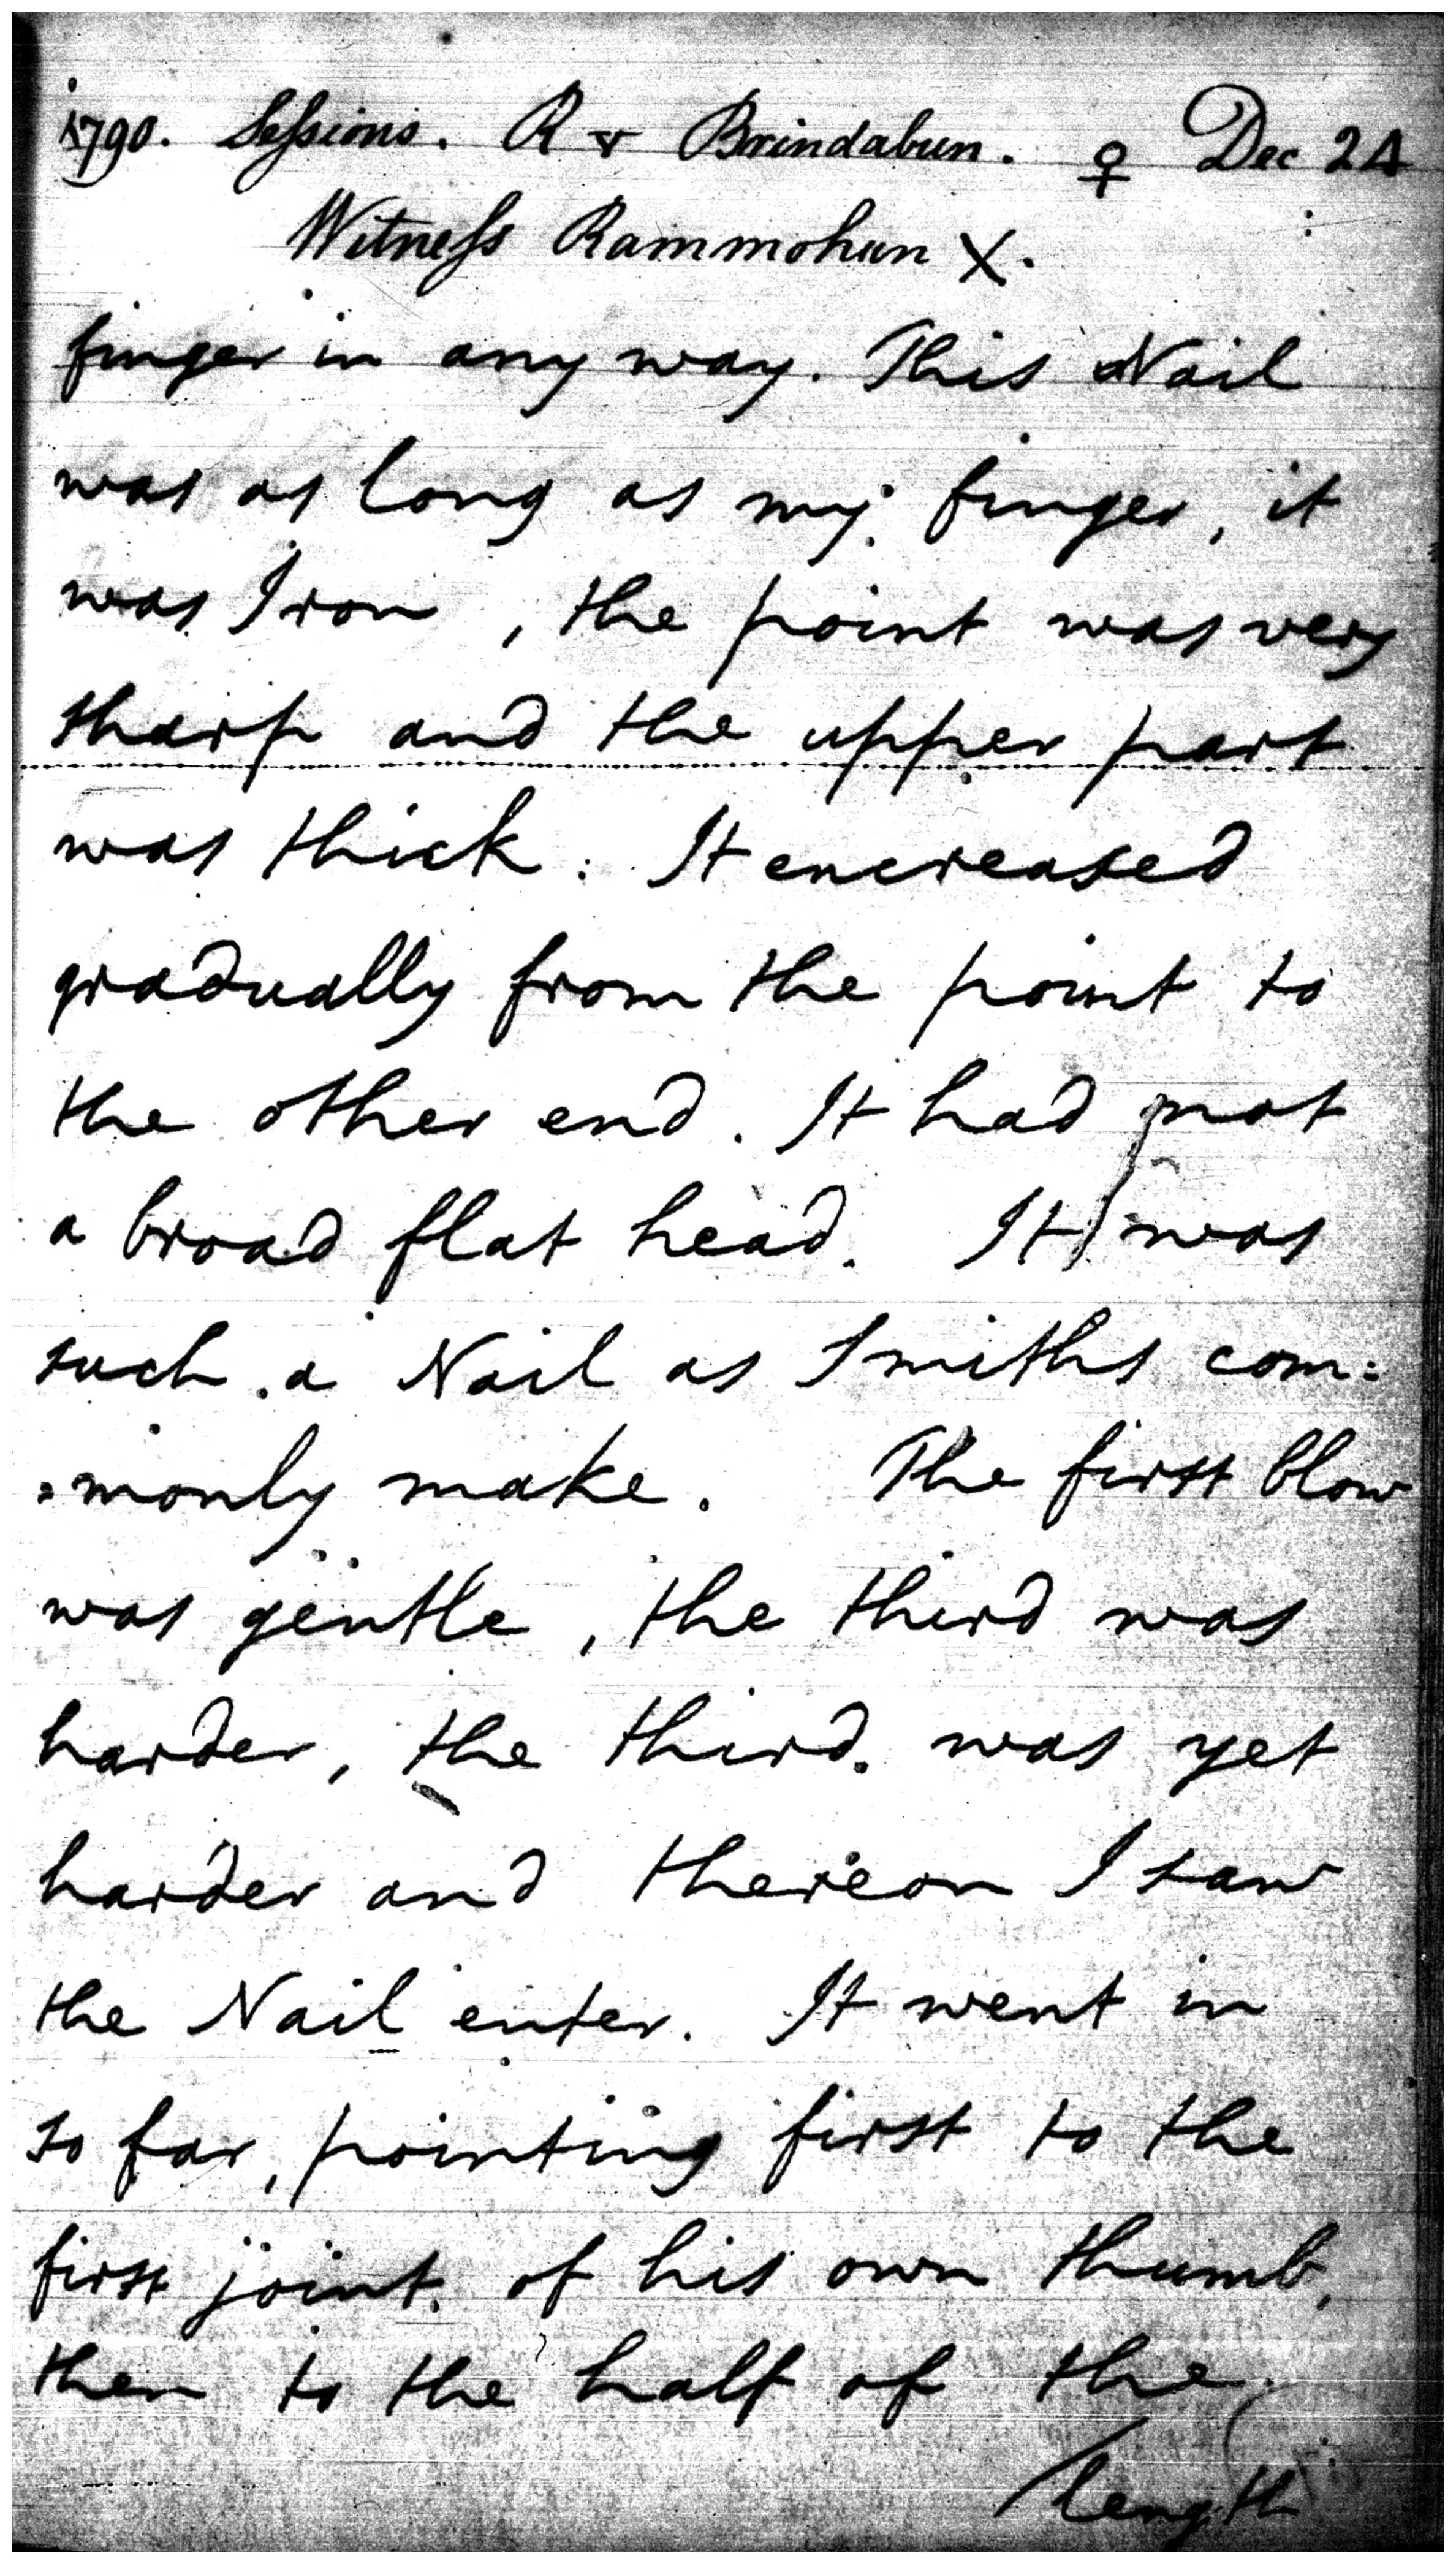 1790. Sessions. R v Brindabun. ♀ Dec 24
Witness Rammohun X.
finger in any way. This Nail
was as long as my finger, it
was Iron, the point was very
sharp and the upper part
was thick: It encreased
gradually from the point to
the other end. It had not
a broad flat head. It was
such a Nail as Smiths com:
:monly make. The first blow
was gentle, the third was
harder, the third was yet
harder and thereon I saw
the Nail enter. It went in
so far, pointing first to the
first joint of his own thumb,
then to the half of the
length